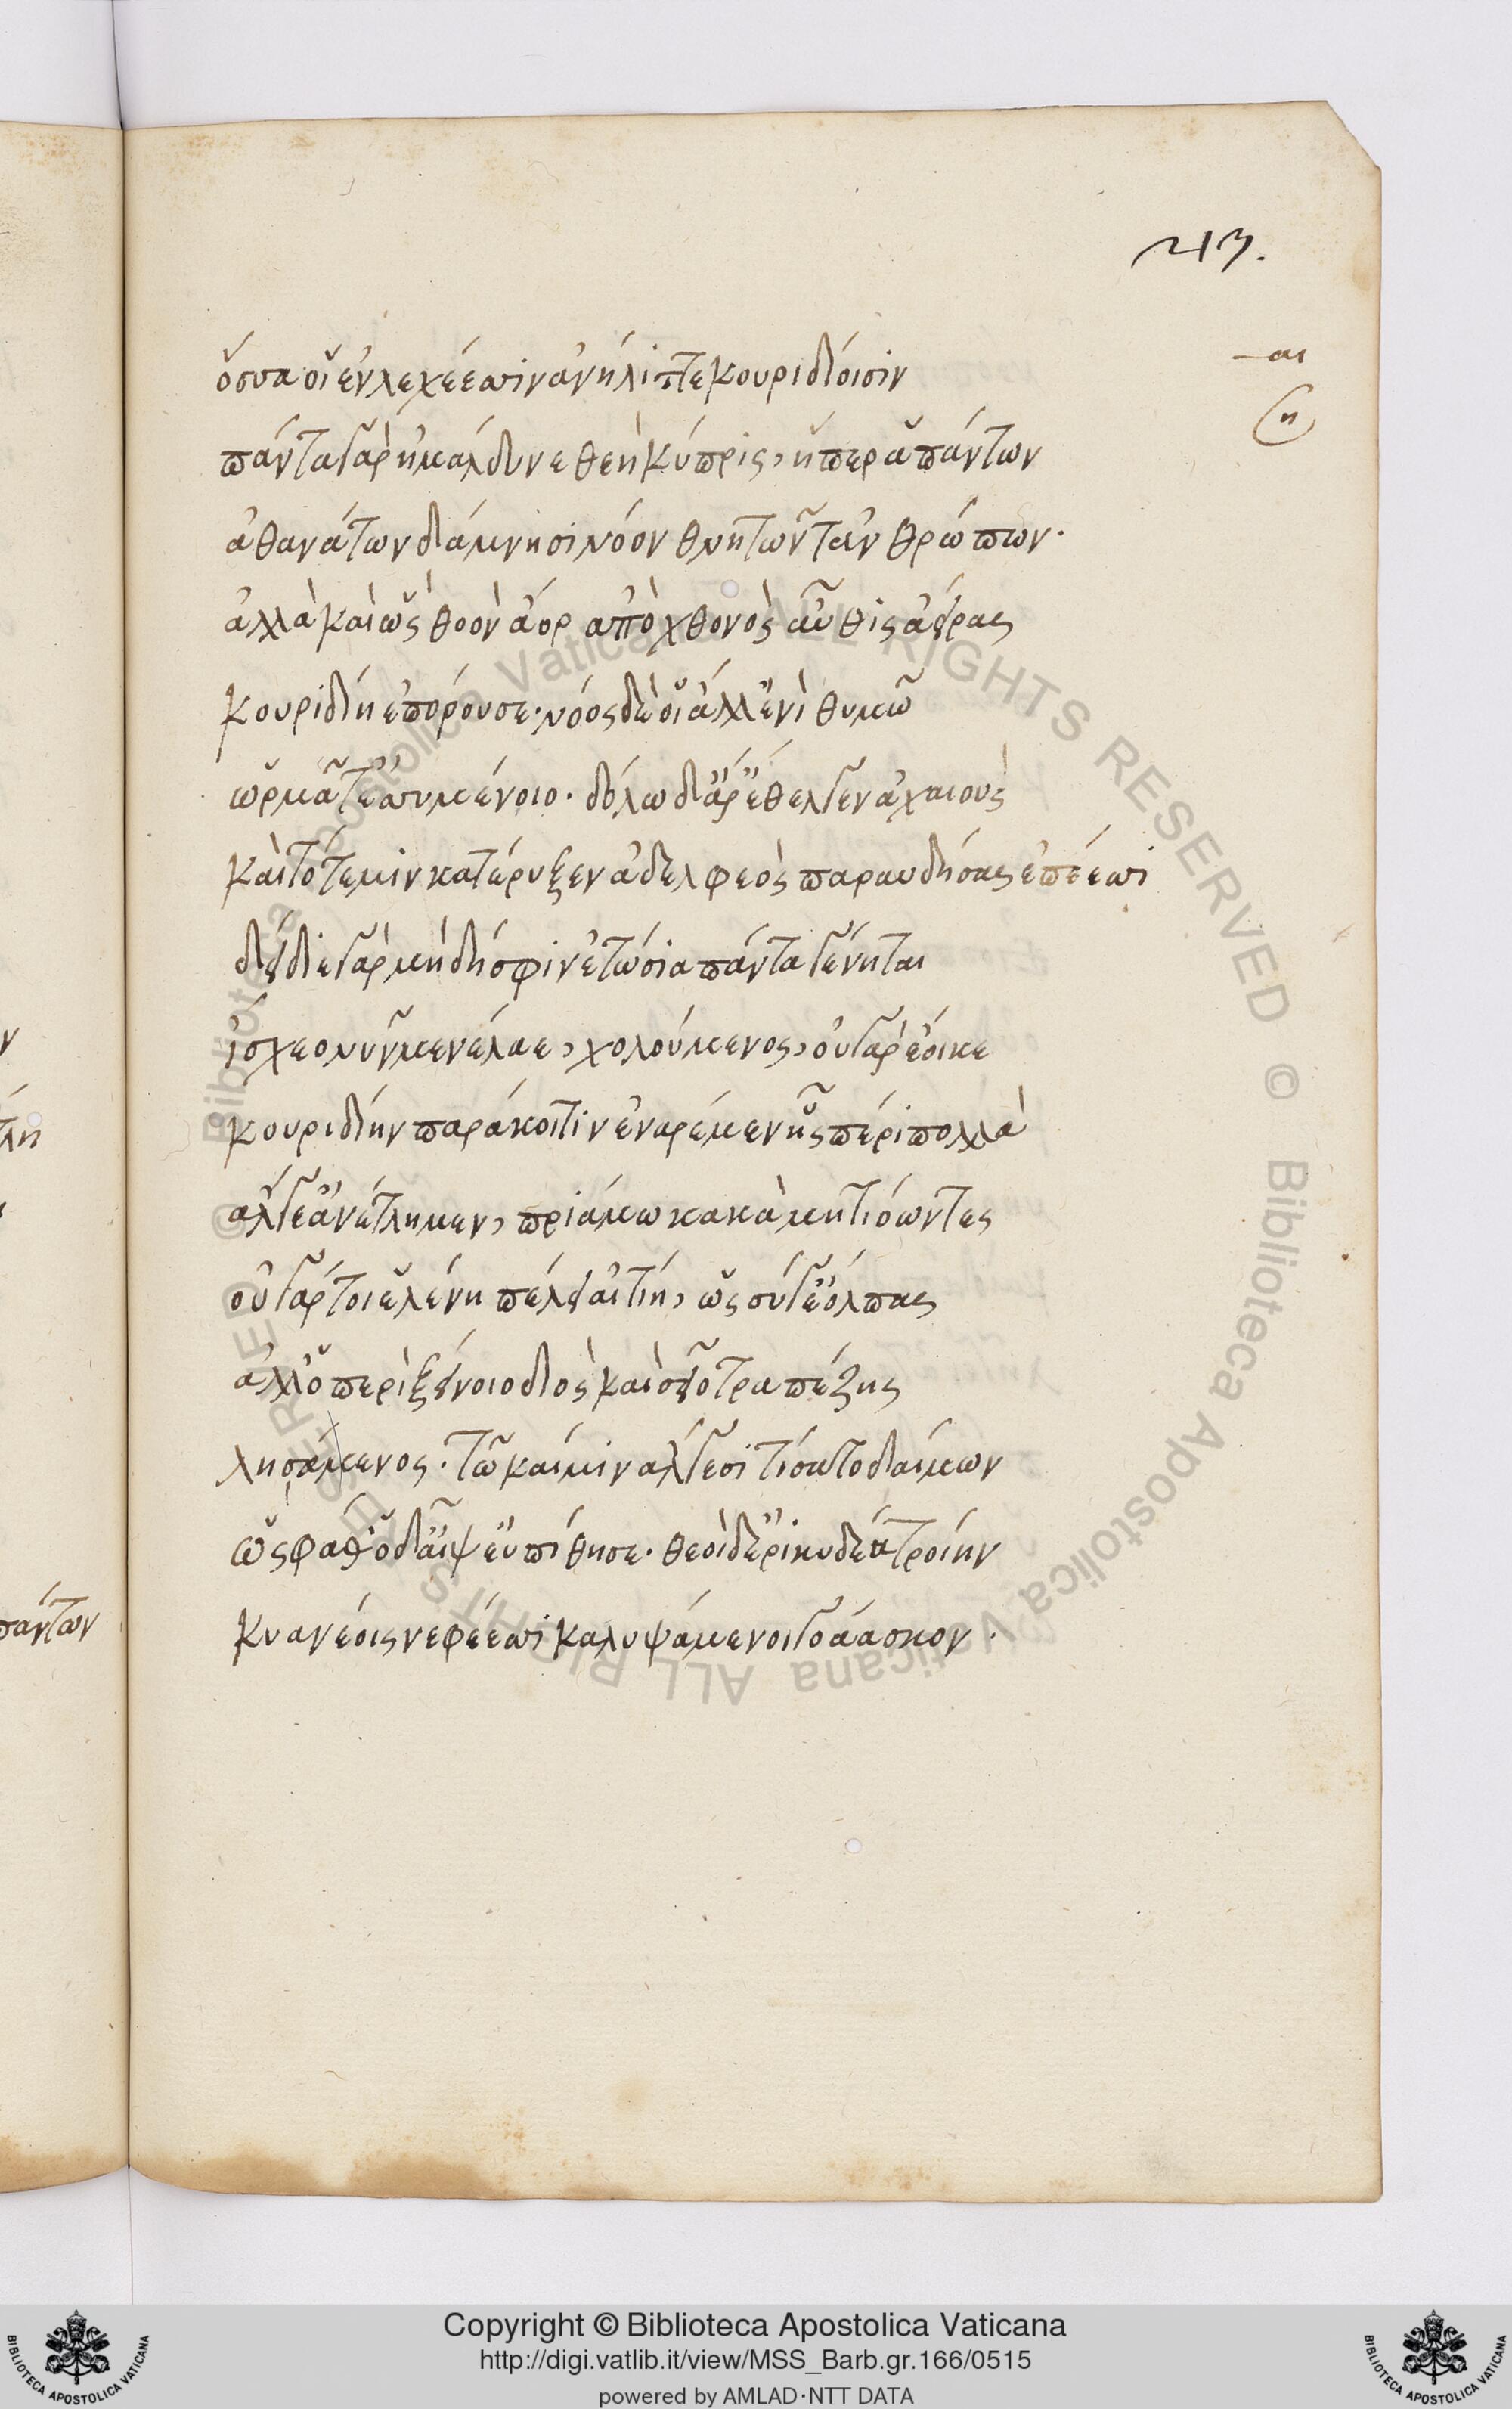 213.
ὅσσα οἱ ἐν λεχέεσσιν ἀνήλιπτε κουριδίοισιν
—αι
πάντα γὰρ ἠμάλδυνε θεὴ κύπρις, ἥπερ ἁπάντων
η
ἀθανάτων δάμνησι νόον θνητῶν τ' ἀνθρώπων.
ἀλλὰ καὶ ὣς θοὸν ἄορ ἀπὸ χθονὸς αὖθις ἀείρας
κουριδίη ἐπόρουσε. νόος δέ οἱ ἄλλ' ἐνὶ θυμῶ
ὡρμᾶτ' ἐσσυμένοιο. δόλω δ' ἄρ' ἔθελγεν ἀχαιοὺς
καὶ τότε μιν κατέρυξεν ἀδελφεὸς παραυδήσας ἐπέεσσι
δείδιε γὰρ μὴ δή σφιν ἐτώσια πάντα γένηται
ἴσχεο νῦν μενέλαε, χολούμενος, οὐ γὰρ ἔοικε
κουριδίην παράκοιτιν ἐναρέμεν ἧς πέρι πολλὰ
ἄλγε' ἀνέτλημεν, πριάμω κακὰ μητιόωντες
οὐ γάρ τοι ἑλένη πέλει αἰτίη, ὡς σύ γ' ἔολπας
ἀλλ' ὃ περὶ ξείνοιο διὸς καὶ σεῖο τραπέζης
λησάμενος. τῶ καί μιν ἄλγεσι τίσατο δαίμων
ὣς φάθ' ὁ δ' αἶψ' εὐπίθησε. θεοὶ δ' ἐρικυδέα τροίην
κυανέοις νεφέεσσι καλυψάμενοι γοάασκον.
ν
τλη
πάντων
Copyright © Biblioteca Apostolica Vaticana
http://digi.vatlib.it/view/MSS_Barb.gr.166/0515
powered by AMLAD·NTT DATA
BIBLIOTECA APOSTOLICA VATICANA
BIBLIOTECA APOSTOLICA VATICANA
Biblioteca Apostolica Vaticana ALL RIGHTS RESERVED © Biblioteca Apostolica Vaticana ALL RIGHTS RESERVED ©